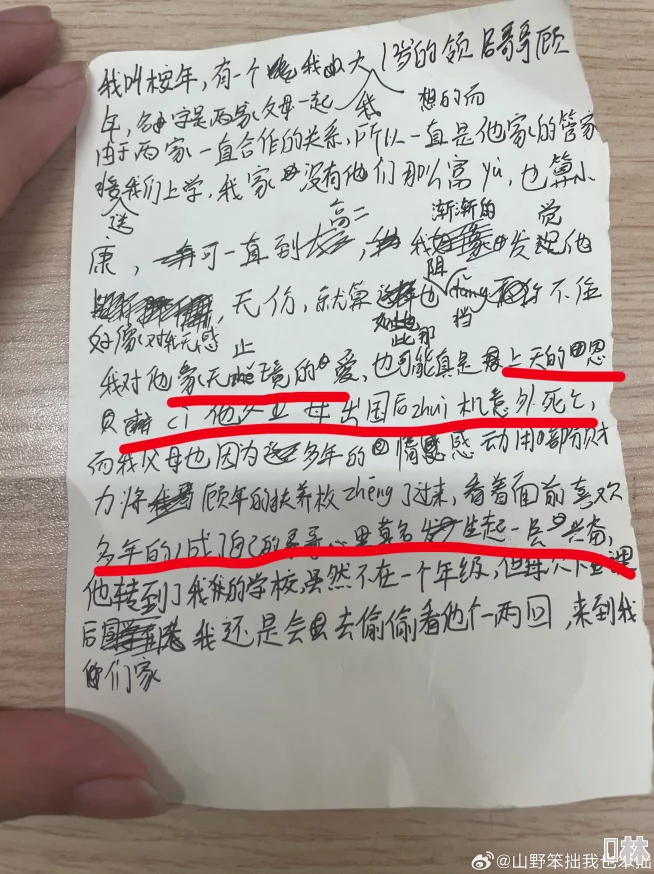 我叫桉年,有一个我大1岁的领居哥哥顾
年,名字是两家父母一起 想的而
我
由于两家一直合作的关系,所以一直是他家的管家
接我们上学,我家没有他们那么富yù,也算小
送 高二 渐渐的 觉
康,可一直到,我发现他
阻
无伤,就算也dǎng不住
好像对我无感 止 如此 此那 挡
我对他家无境的爱,也可能真是上天的恩
贝cì他父母出国后zhuì机意外死亡,
而我父母也因为多年的情感动用部财
力将顾年的扶养权zhēng了过来,看着面前喜欢
多年的人成了自己的哥哥心里莫名生起一层兴奋,
他转到了我的学校,虽然不在一个年级,但每次下课
后我还是会去偷偷看他个一两回,来到我
们家
@山野笨拙我也笨拙